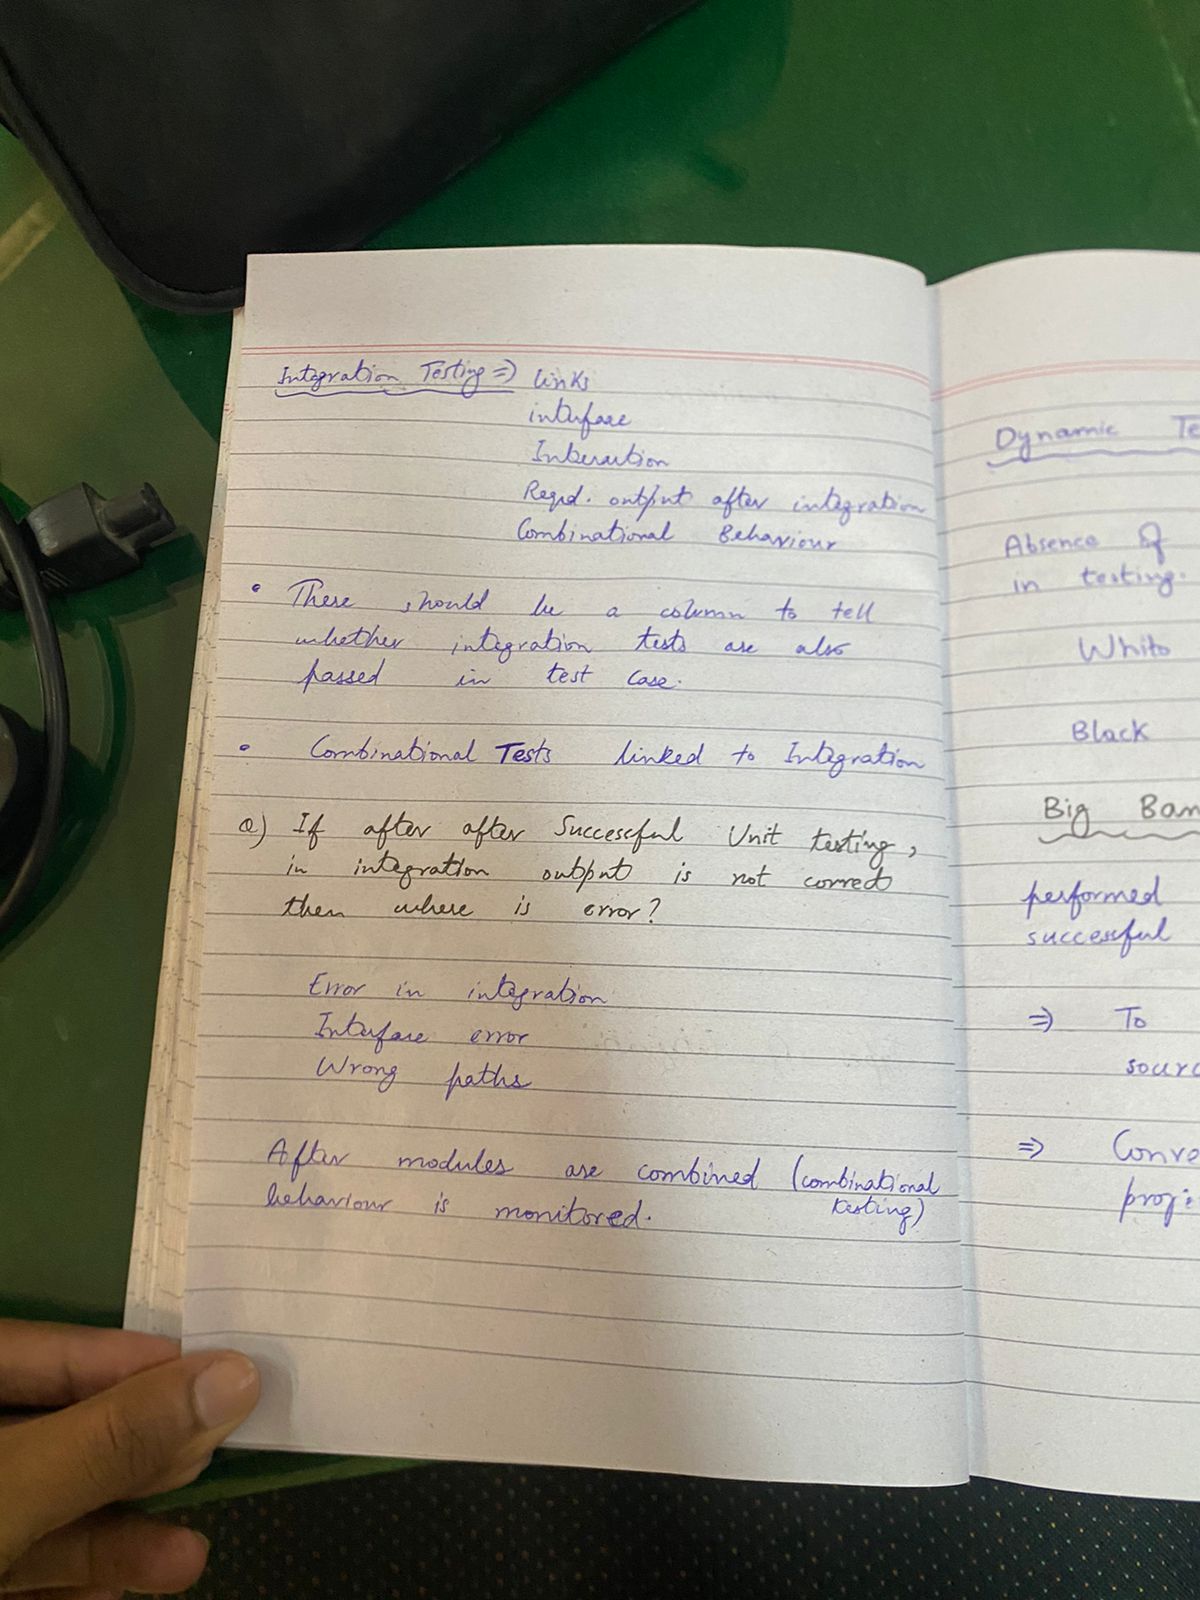 Integration Testing => links
interface
Interaction
Reqd. output after integration
Combinational Behaviour
• There should be a column to tell
whether integration tests are also
passed in test case.
• Combinational Tests linked to Integration
Q) If after after Successful Unit testing,
in integration output is not correct
then where is error?
Error in integration
Interface error
Wrong paths
After modules are combined (combinational
behaviour is monitored. testing)
Dynamic Te
Absence of
in testing.
White
Black
Big Ban
performed
successful
=> To
sourc
=> Conve
proje